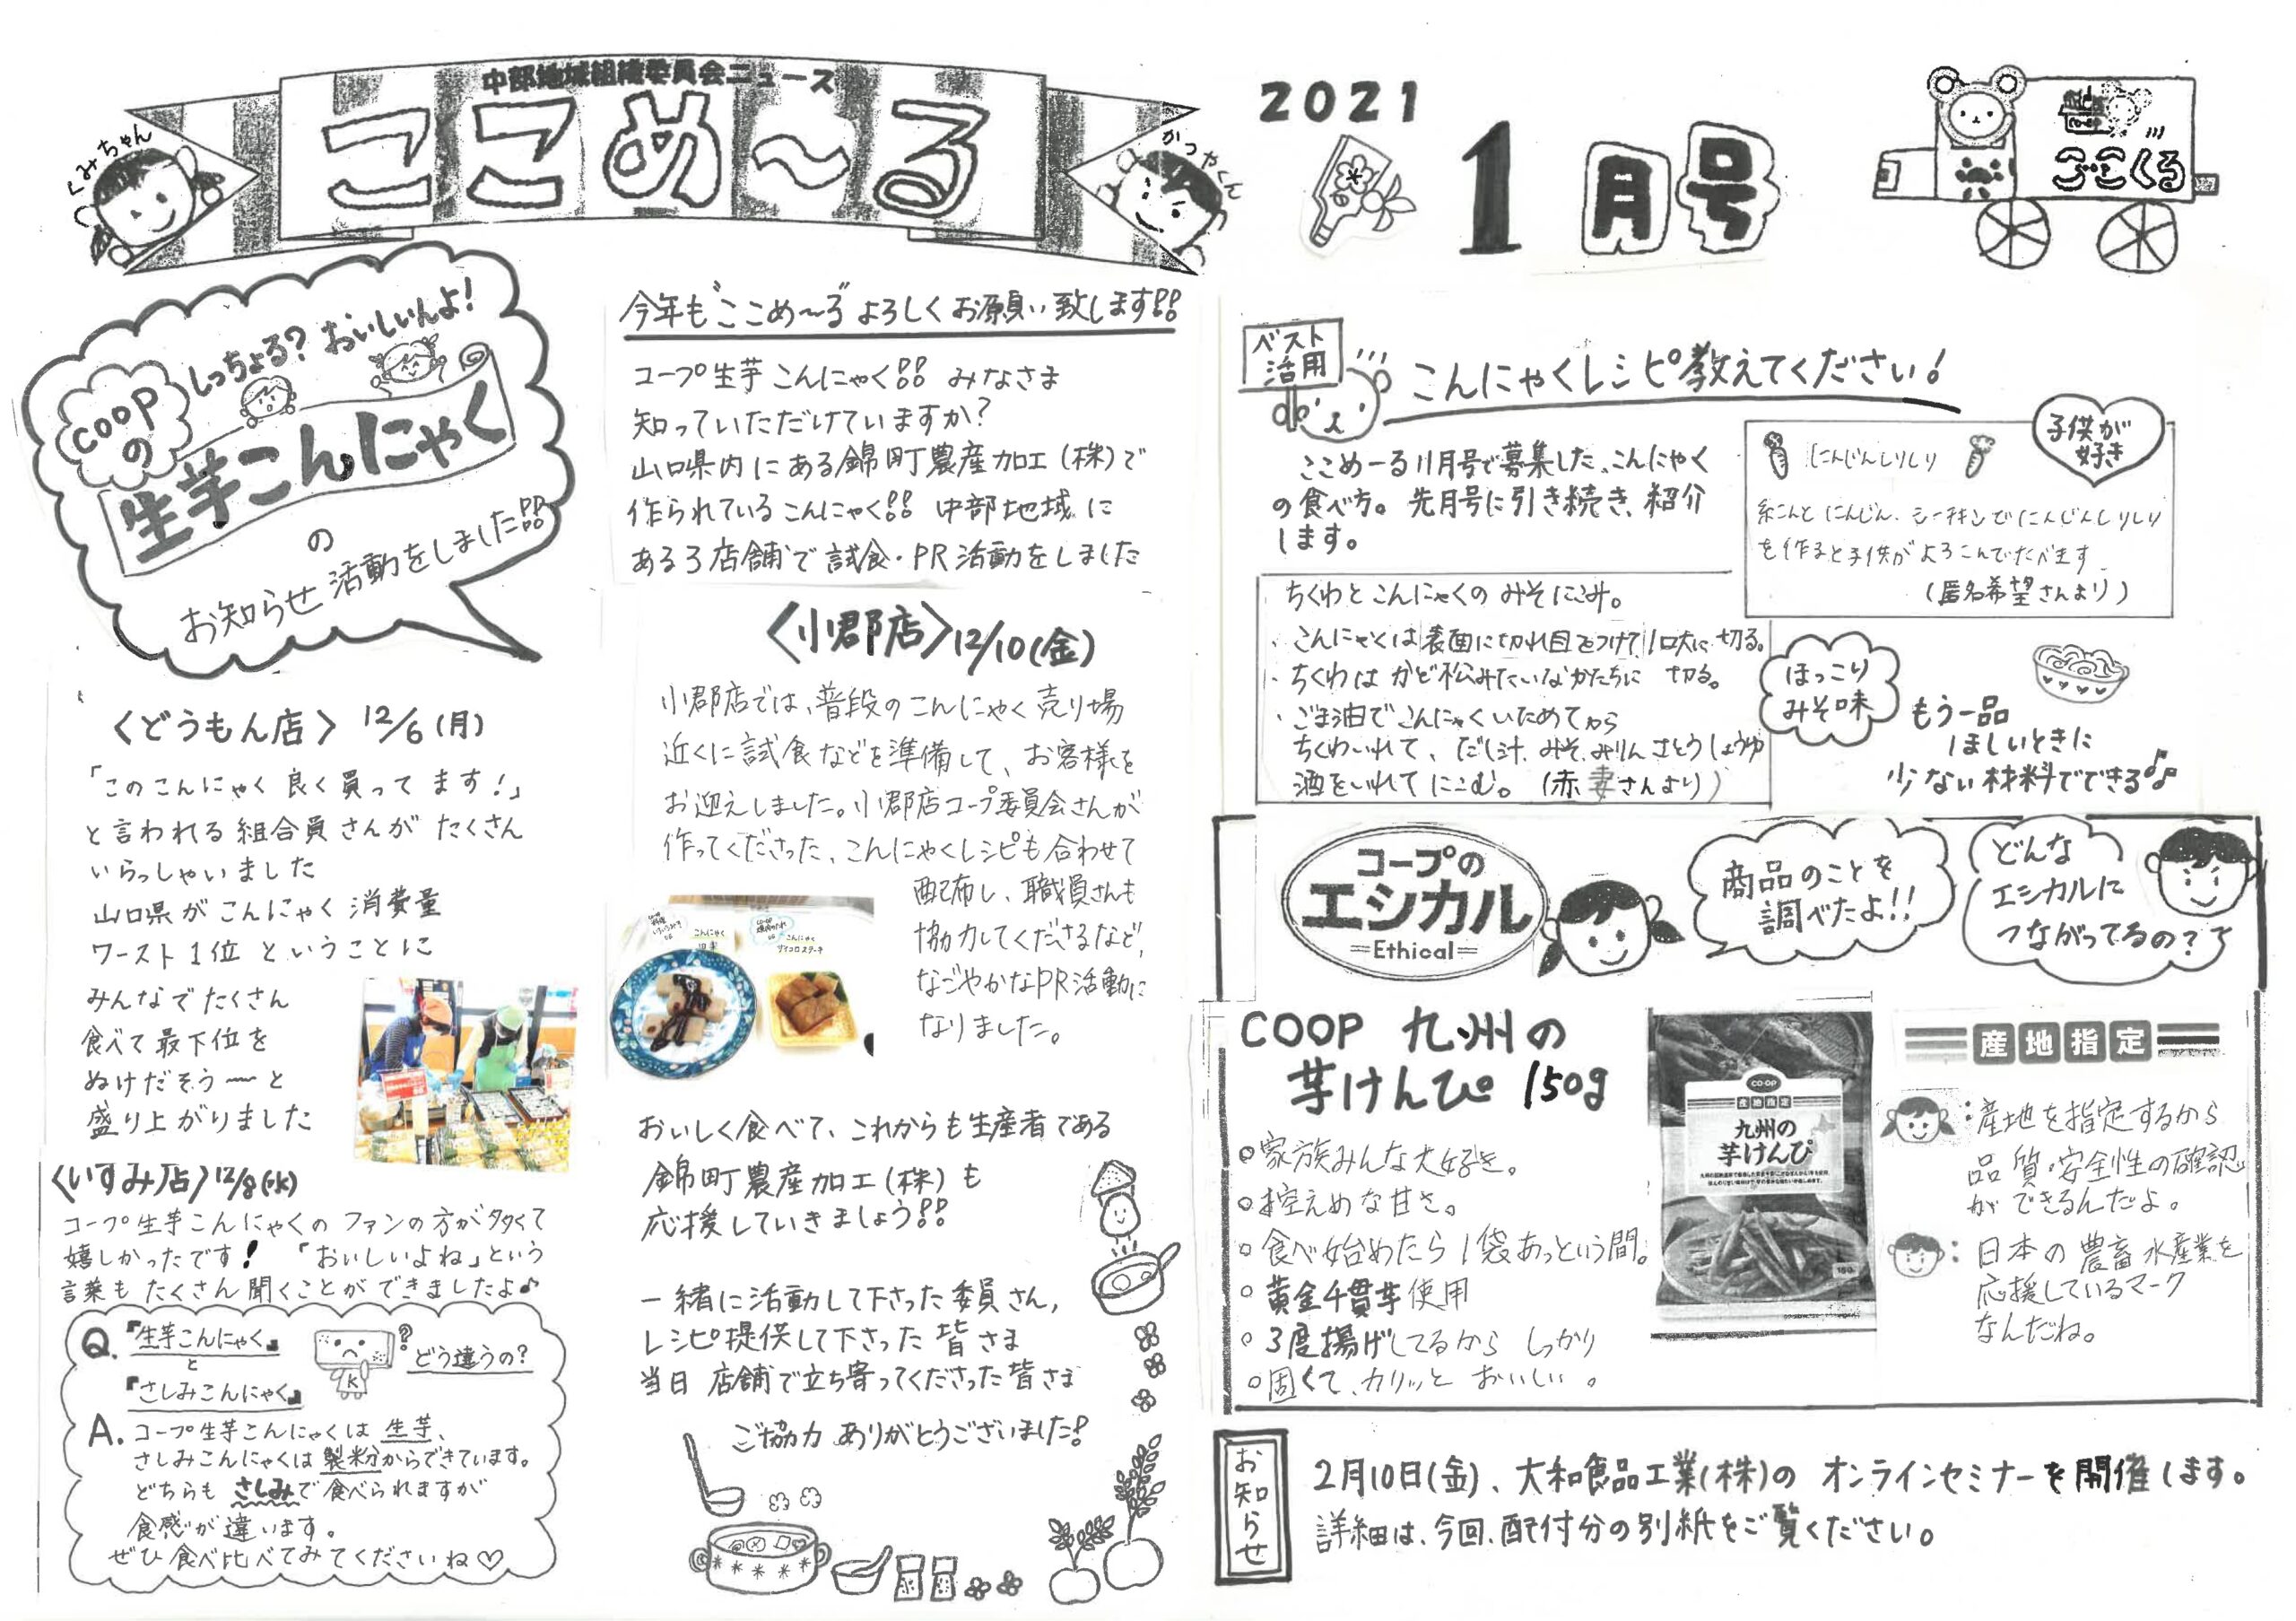 中部地域組織委員会ニュース
ここめ～る
くみちゃん
かつやくん
2021
1月号
ここくる
しっちょる? おいしいんよ!
COOPの
生芋こんにゃく
の
お知らせ活動をしました!!
今年も"ここめ～る"よろしくお願い致します!!
コープ生芋こんにゃく!! みなさま
知っていただけていますか?
山口県内にある錦町農産加工(株)で
作られているこんにゃく!! 中部地域に
ある3店舗で試食・PR活動をしました
〈どうもん店〉 12/6(月)
「このこんにゃく良く買ってます!」
と言われる組合員さんがたくさん
いらっしゃいました
山口県がこんにゃく消費量
ワースト1位ということに
みんなでたくさん
食べて最下位を
ぬけだそう～と
盛り上がりました
〈いずみ店〉12/8(水)
コープ生芋こんにゃくのファンの方が多くて
嬉しかったです! 「おいしいよね」という
言葉もたくさん聞くことができましたよ♪
Q.『生芋こんにゃく』
と
『さしみこんにゃく』
どう違うの?
A. コープ生芋こんにゃくは生芋、
さしみこんにゃくは製粉からできています。
どちらもさしみで食べられますが
食感が違います。
ぜひ食べ比べてみてくださいね♡
〈小郡店〉12/10(金)
小郡店では、普段のこんにゃく売り場
近くに試食などを準備して、お客様を
お迎えしました。小郡店コープ委員会さんが
作ってくださった、こんにゃくレシピも合わせて
配布し、職員さんも
協力してくださるなど、
なごやかなPR活動に
なりました。
こんにゃく
こんにゃく
サイコロステーキ
おいしく食べて、これからも生産者である
錦町農産加工(株)も
応援していきましょう!!
一緒に活動して下さった委員さん,
レシピ提供して下さった皆さま
当日店舗で立ち寄ってくださった皆さま
ご協力ありがとうございました!
ベスト
活用
こんにゃくレシピ教えてください!
ここめーる11月号で募集した、こんにゃく
の食べ方。先月号に引き続き、紹介
します。
にんじんしりしり
子供が
好き
糸こんとにんじん、シーチキンでにんじんしりしり
を作ると子供がよろこんでたべます
(匿名希望さんより)
ちくわとこんにゃくのみそにこみ。
・こんにゃくは表面に切れ目をつけて1口大に切る。
・ちくわはかど松みたいなかたちに切る。
・ごま油でこんにゃくいためてから
ちくわいれて、だし汁、みそ、みりん、さとう、しょうゆ
酒をいれてにこむ。 (赤妻さんより)
ほっこり
みそ味
もう一品
ほしいときに
少ない材料でできる♪
コープの
エシカル
Ethical
商品のことを
調べたよ!!
どんな
エシカルに
つながってるの?
COOP 九州の
芋けんぴ 150g
○家族みんな大好き。
○控えめな甘さ。
○食べ始めたら1袋あっという間。
○黄金千貫芋使用
○3度揚げしてるから しっかり
○固くて、カリッと おいしい。
CO・OP
産地指定
九州の
芋けんぴ
産地指定
:産地を指定するから
品質・安全性の確認
ができるんだよ。
:日本の農畜水産業を
応援しているマーク
なんだね。
お知らせ
2月10日(金)、大和食品工業(株)のオンラインセミナーを開催します。
詳細は、今回、配付分の別紙をご覧ください。